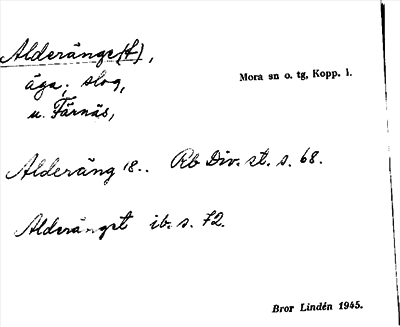 Alderänge(t),
äga; slog,
u. Färnäs,
Mora sn o. tg, Kopp. l.
Alderäng 18.. Rb Div. st. s. 68.
Alderänget ib. s. 72.
Bror Lindén 1945.